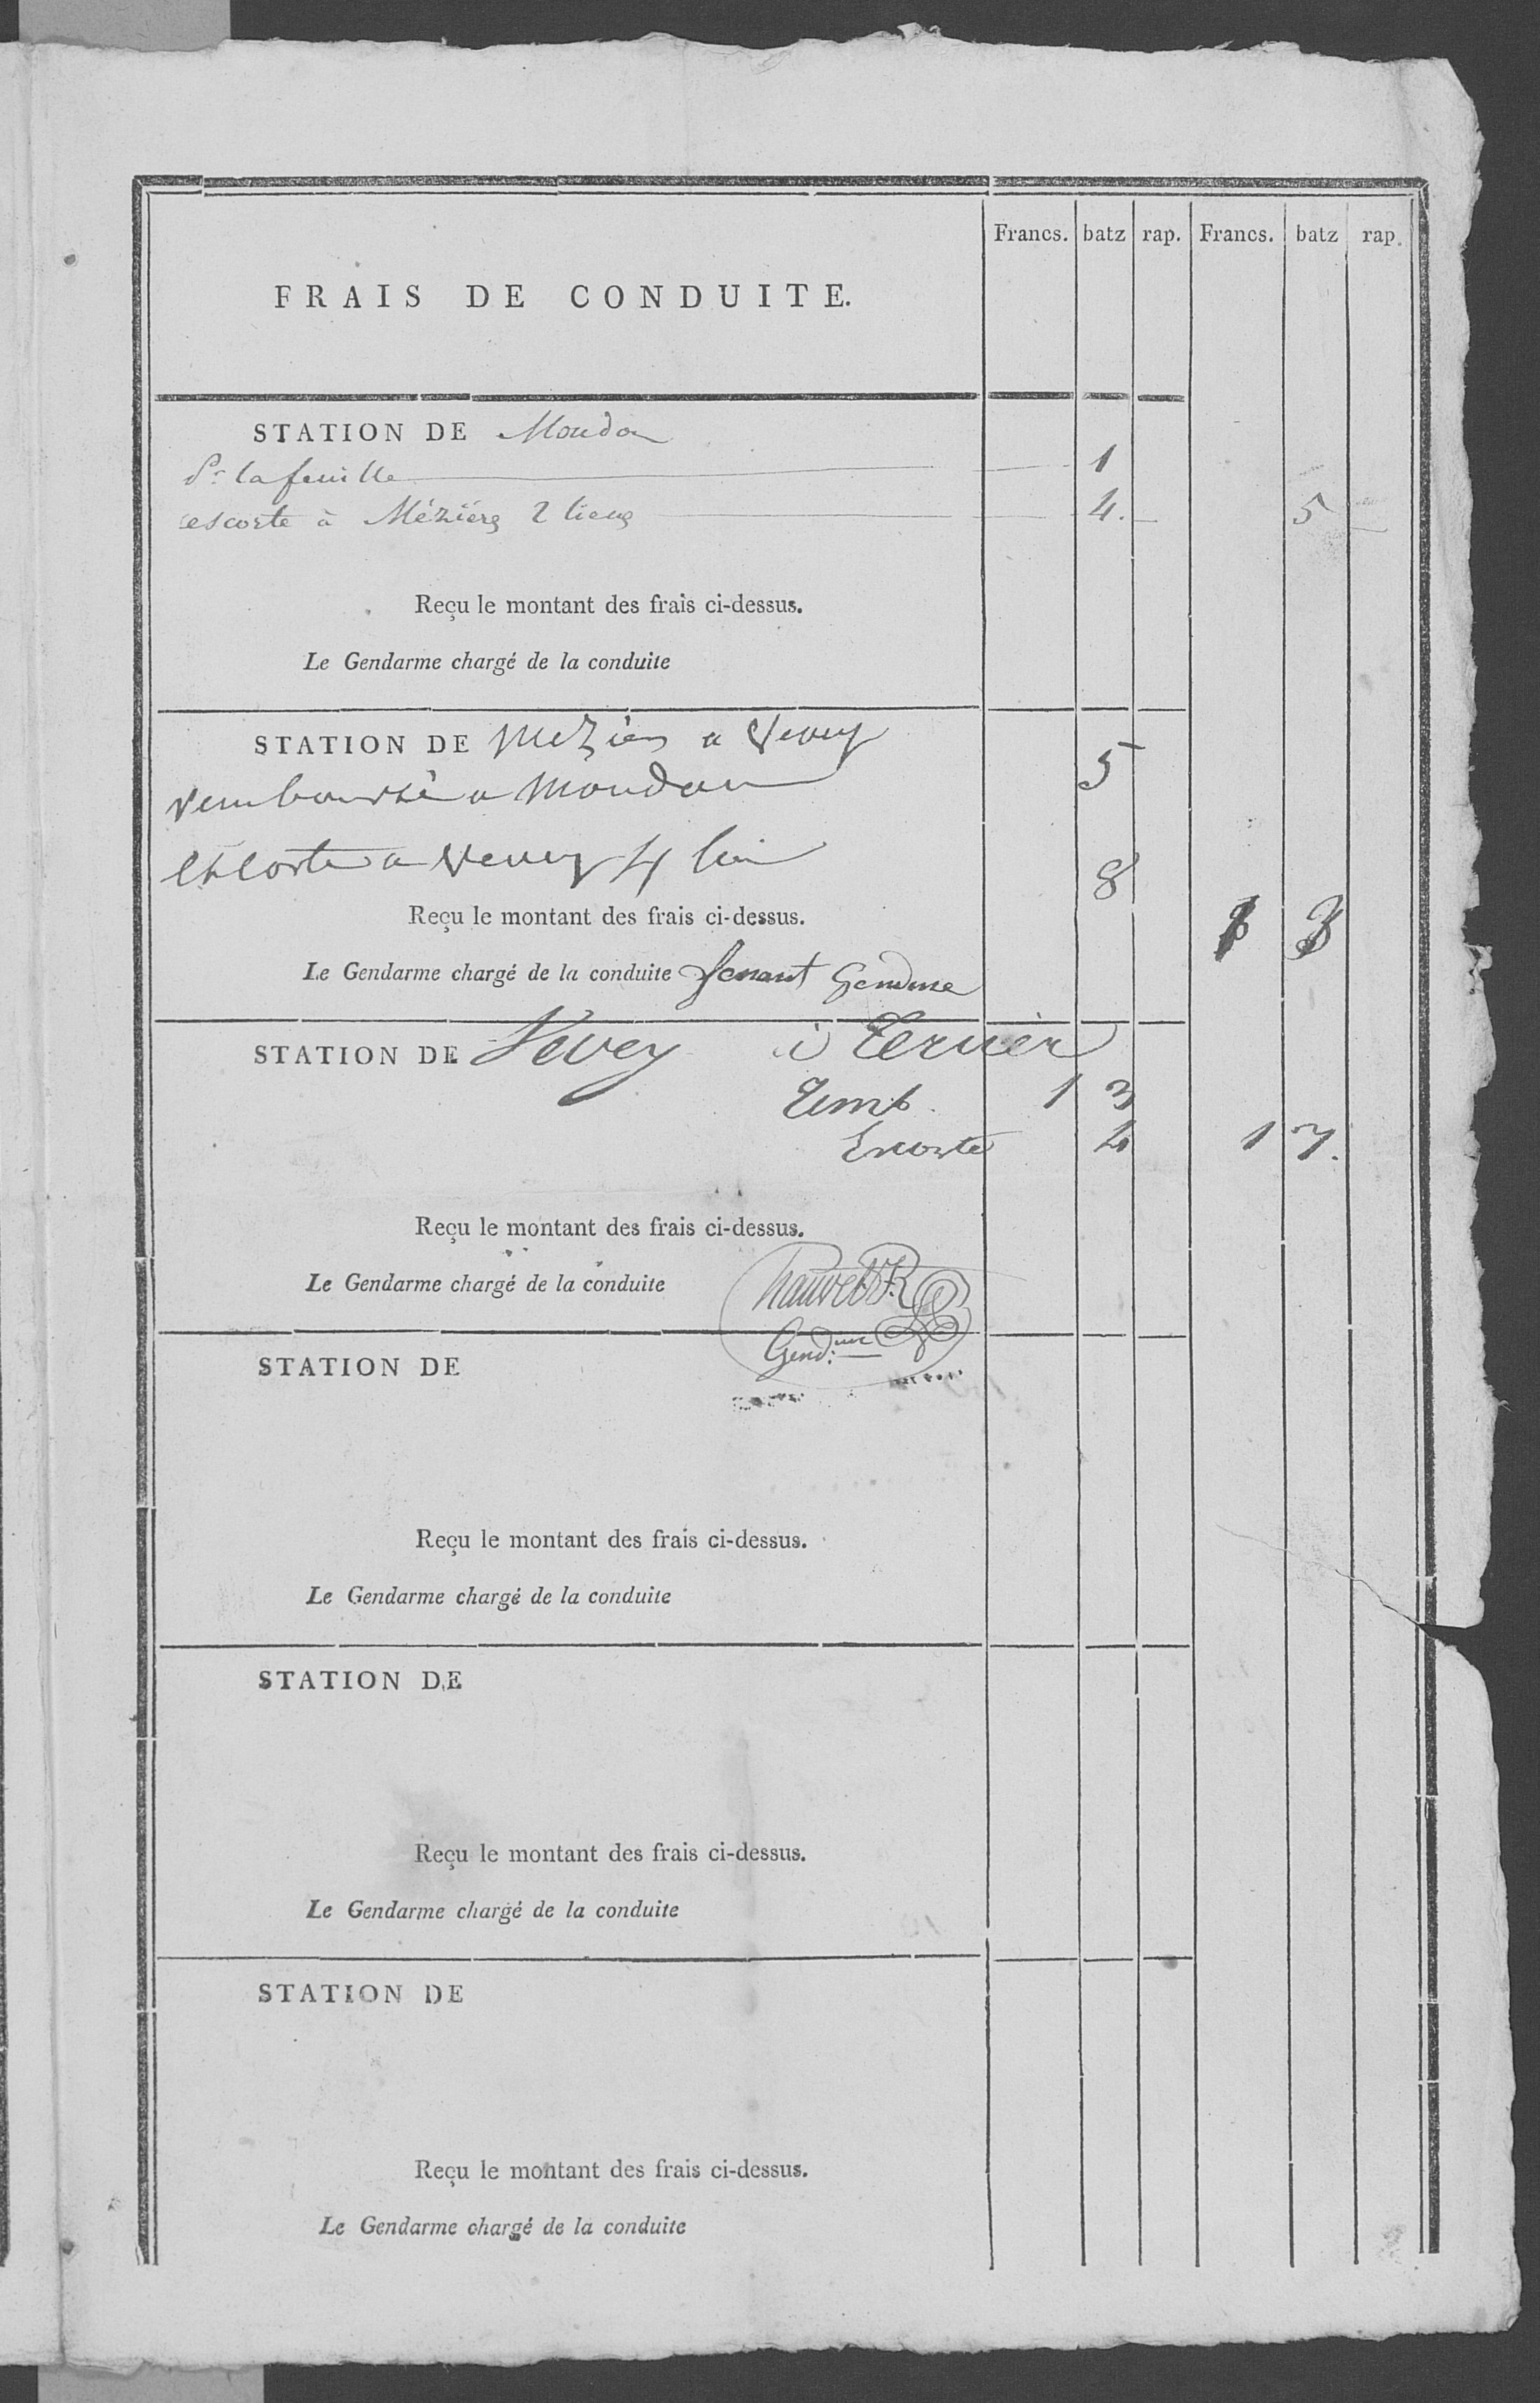 Francs. batz rap. Francs. batz rap.
FRAIS DE CONDUITE.
STATION DE Moudon
Pr la feuille 1
escorte à Mézières 2 lieues 4. 5
Reçu le montant des frais ci-dessus.
Le Gendarme chargé de la conduite
STATION DE Mezieres a Vevey
remboursé a Moudon 5
Escorte a Vevey 4 8
Reçu le montant des frais ci-dessus. 1 3
Le Gendarme chargé de la conduite Gendme
STATION DE Vevey à
Remb. 1 3
Escorte 4 1 7.
Reçu le montant des frais ci-dessus.
Le Gendarme chargé de la conduite
Gend:me
STATION DE
Reçu le montant des frais ci-dessus.
Le Gendarme chargé de la conduite
STATION DE
Reçu le montant des frais ci-dessus.
Le Gendarme chargé de la conduite
STATION DE
Reçu le montant des frais ci-dessus.
Le Gendarme chargé de la conduite